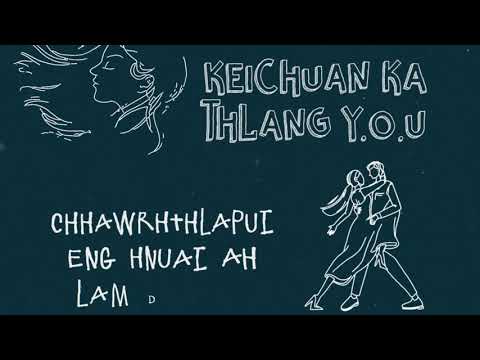 KEICHUAN KA
THLANG Y.O.U
CHHAWRHTHLAPUI
ENG HNUAI AH
LAM D